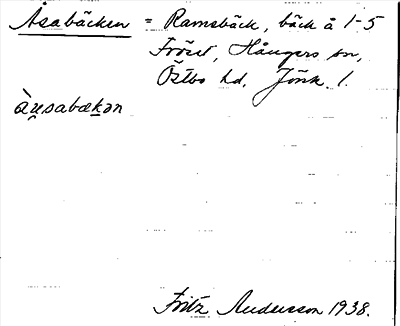 Åsabäcken = Ramsbäck, bäck å 1-5
Fröset, Hångers sn,
Östbo hd. Jönk. l.
àu̯sabæḵən
Fritz Andersson 1938.